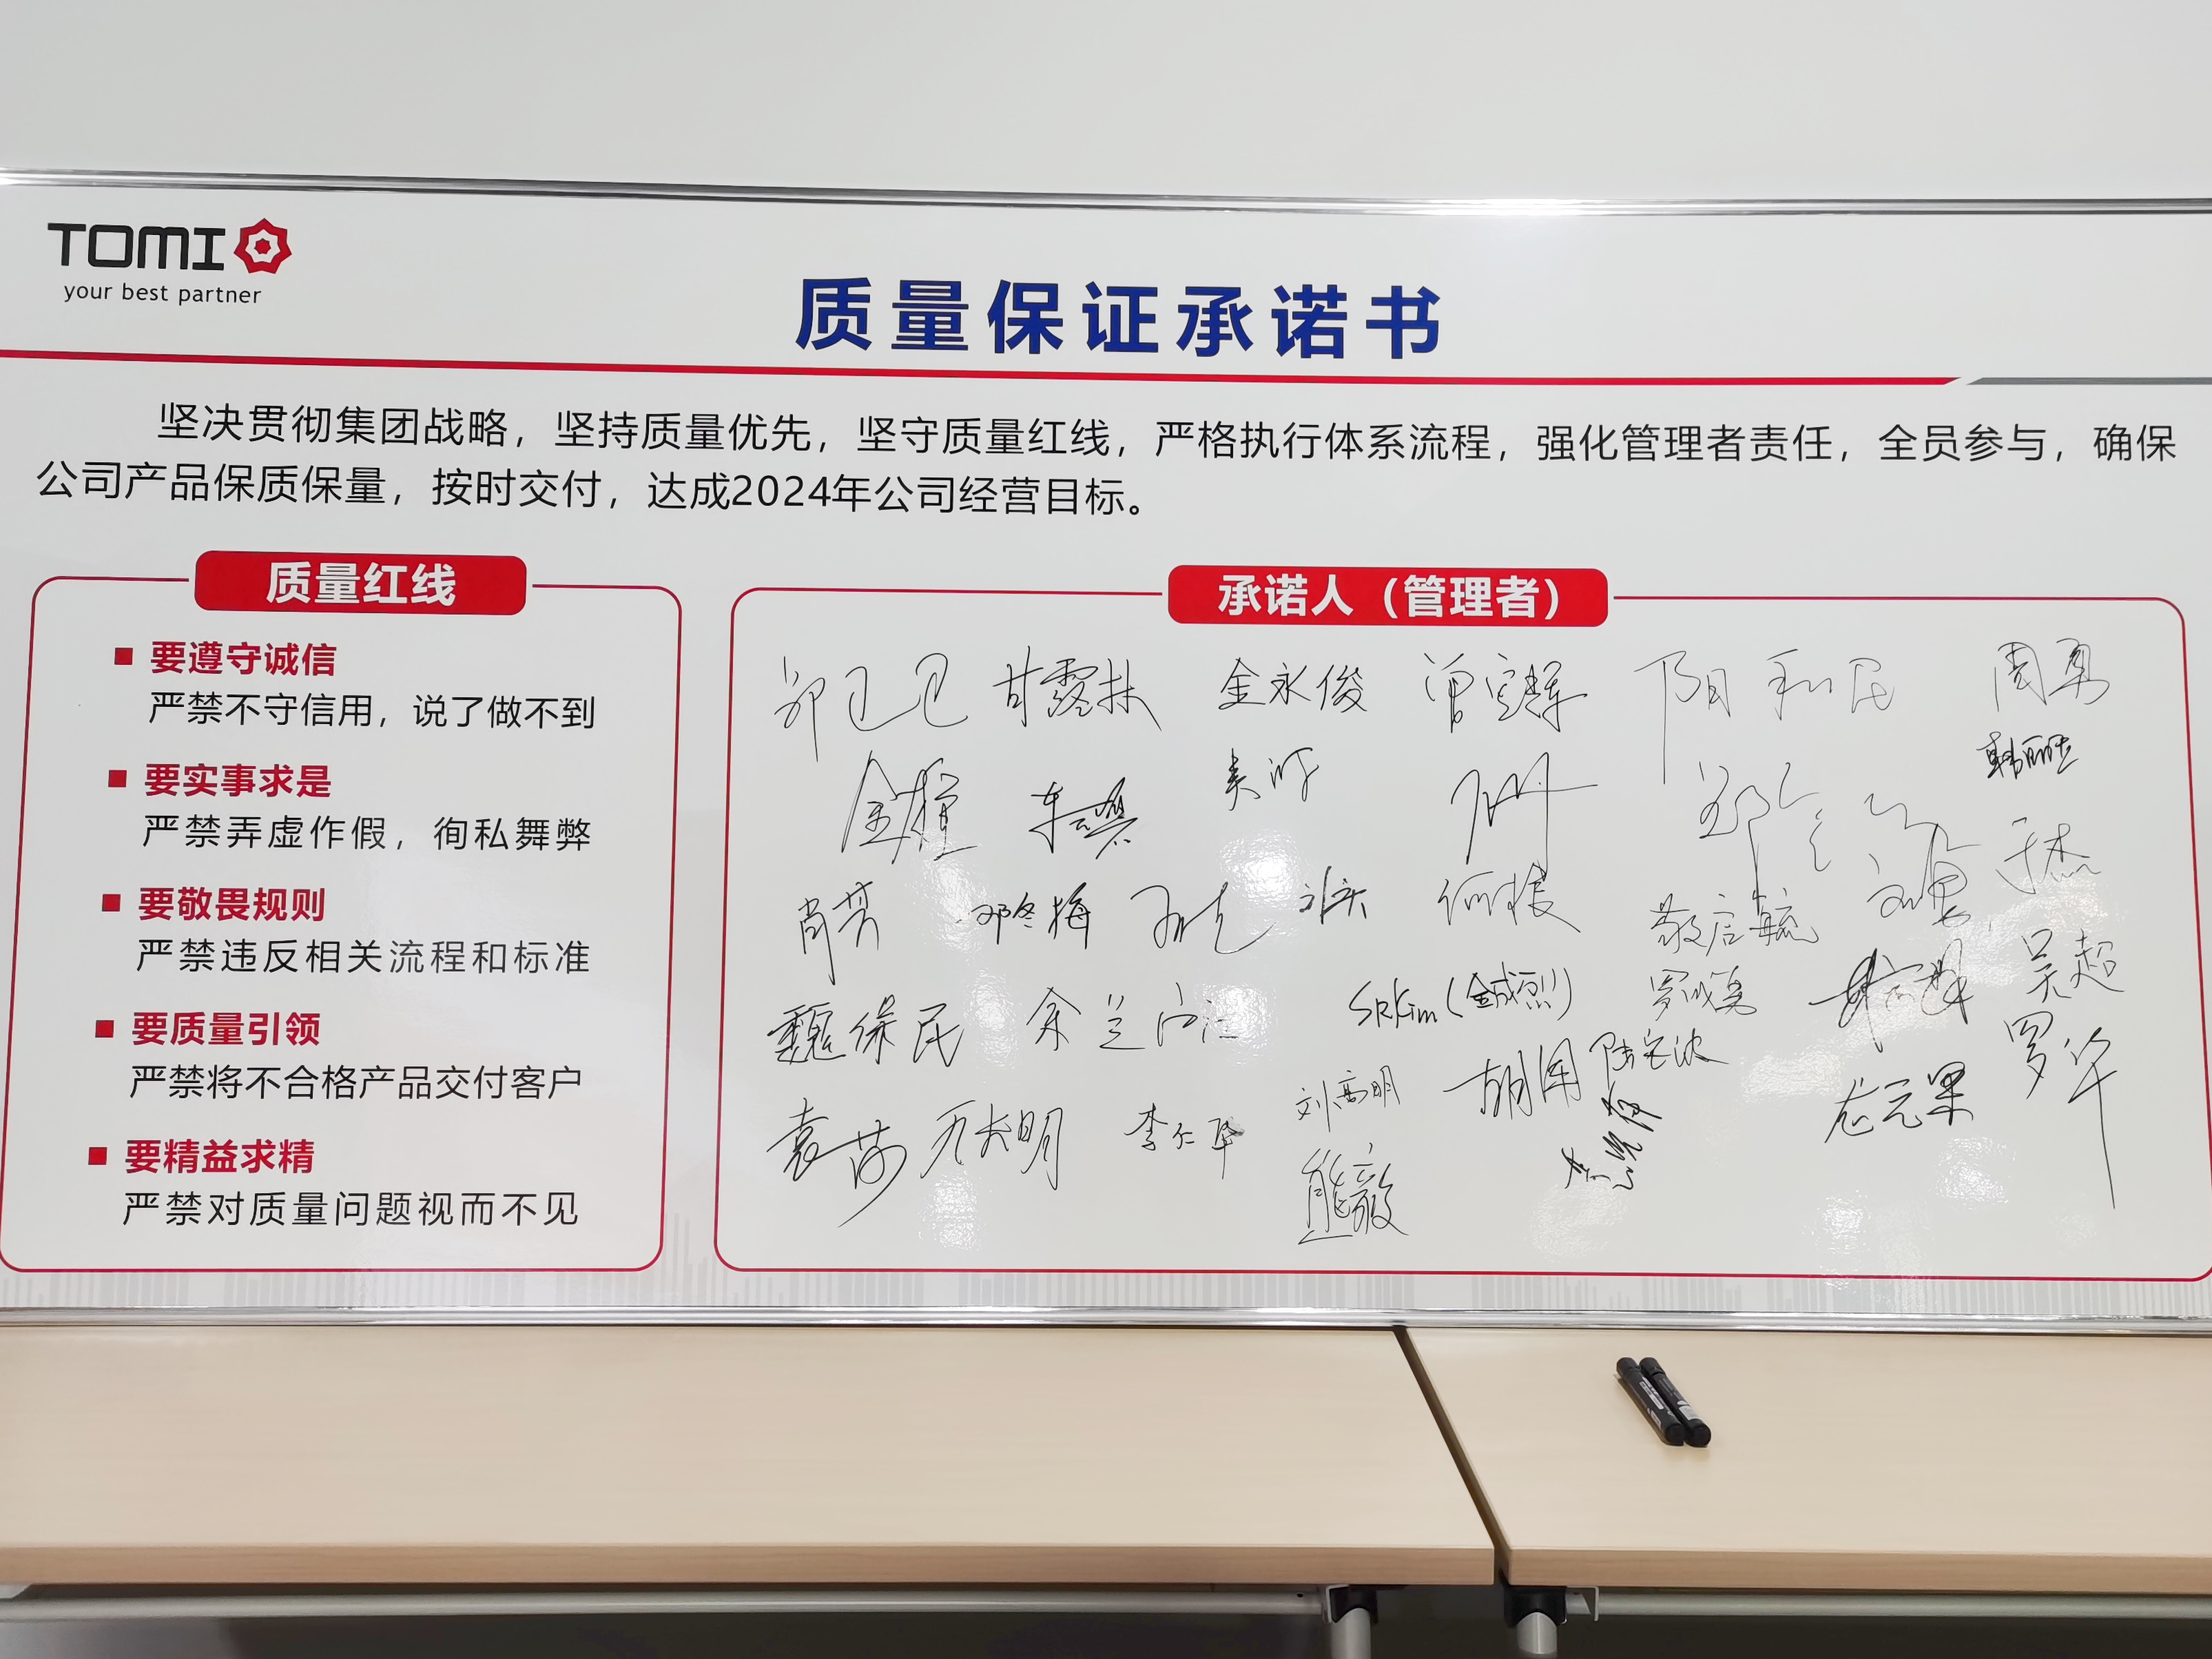 TOMI
your best partner
质量保证承诺书
坚决贯彻集团战略，坚持质量优先，坚守质量红线，严格执行体系流程，强化管理者责任，全员参与，确保
公司产品保质保量，按时交付，达成2024年公司经营目标。
质量红线
■ 要遵守诚信
严禁不守信用，说了做不到
■ 要实事求是
严禁弄虚作假，徇私舞弊
■ 要敬畏规则
严禁违反相关流程和标准
■ 要质量引领
严禁将不合格产品交付客户
■ 要精益求精
严禁对质量问题视而不见
承诺人（管理者）
甘露林 金永俊 阳和民 周勇
肖芳 邓冬梅 敬启毓 于杰
魏保民 SRKim(金成烈) 吴超
袁莎 李仁华 刘高明 胡军 龙元果 罗华
熊毅